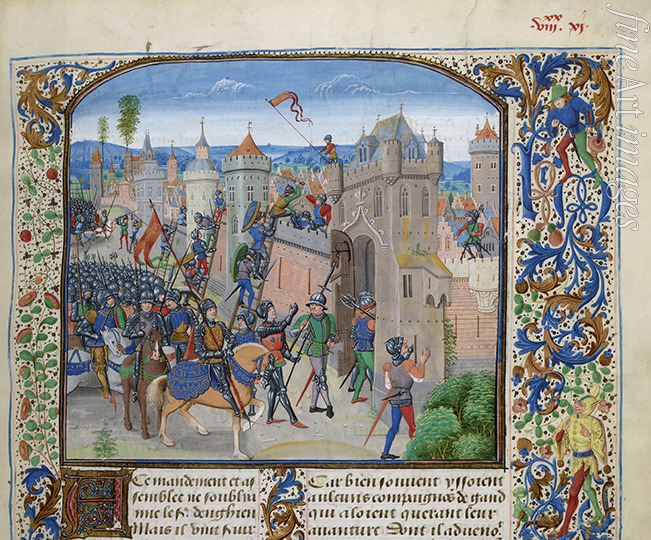 XX
VIII. XI.
fineArtimages
Ce mandement et as
semblee ne soublia
mie le sr denghien
Mais il vint sur
Car bien souvent yssoient
aulcuns compaignōs de gand
qui aloient querant leur
avanture Dont il advenor